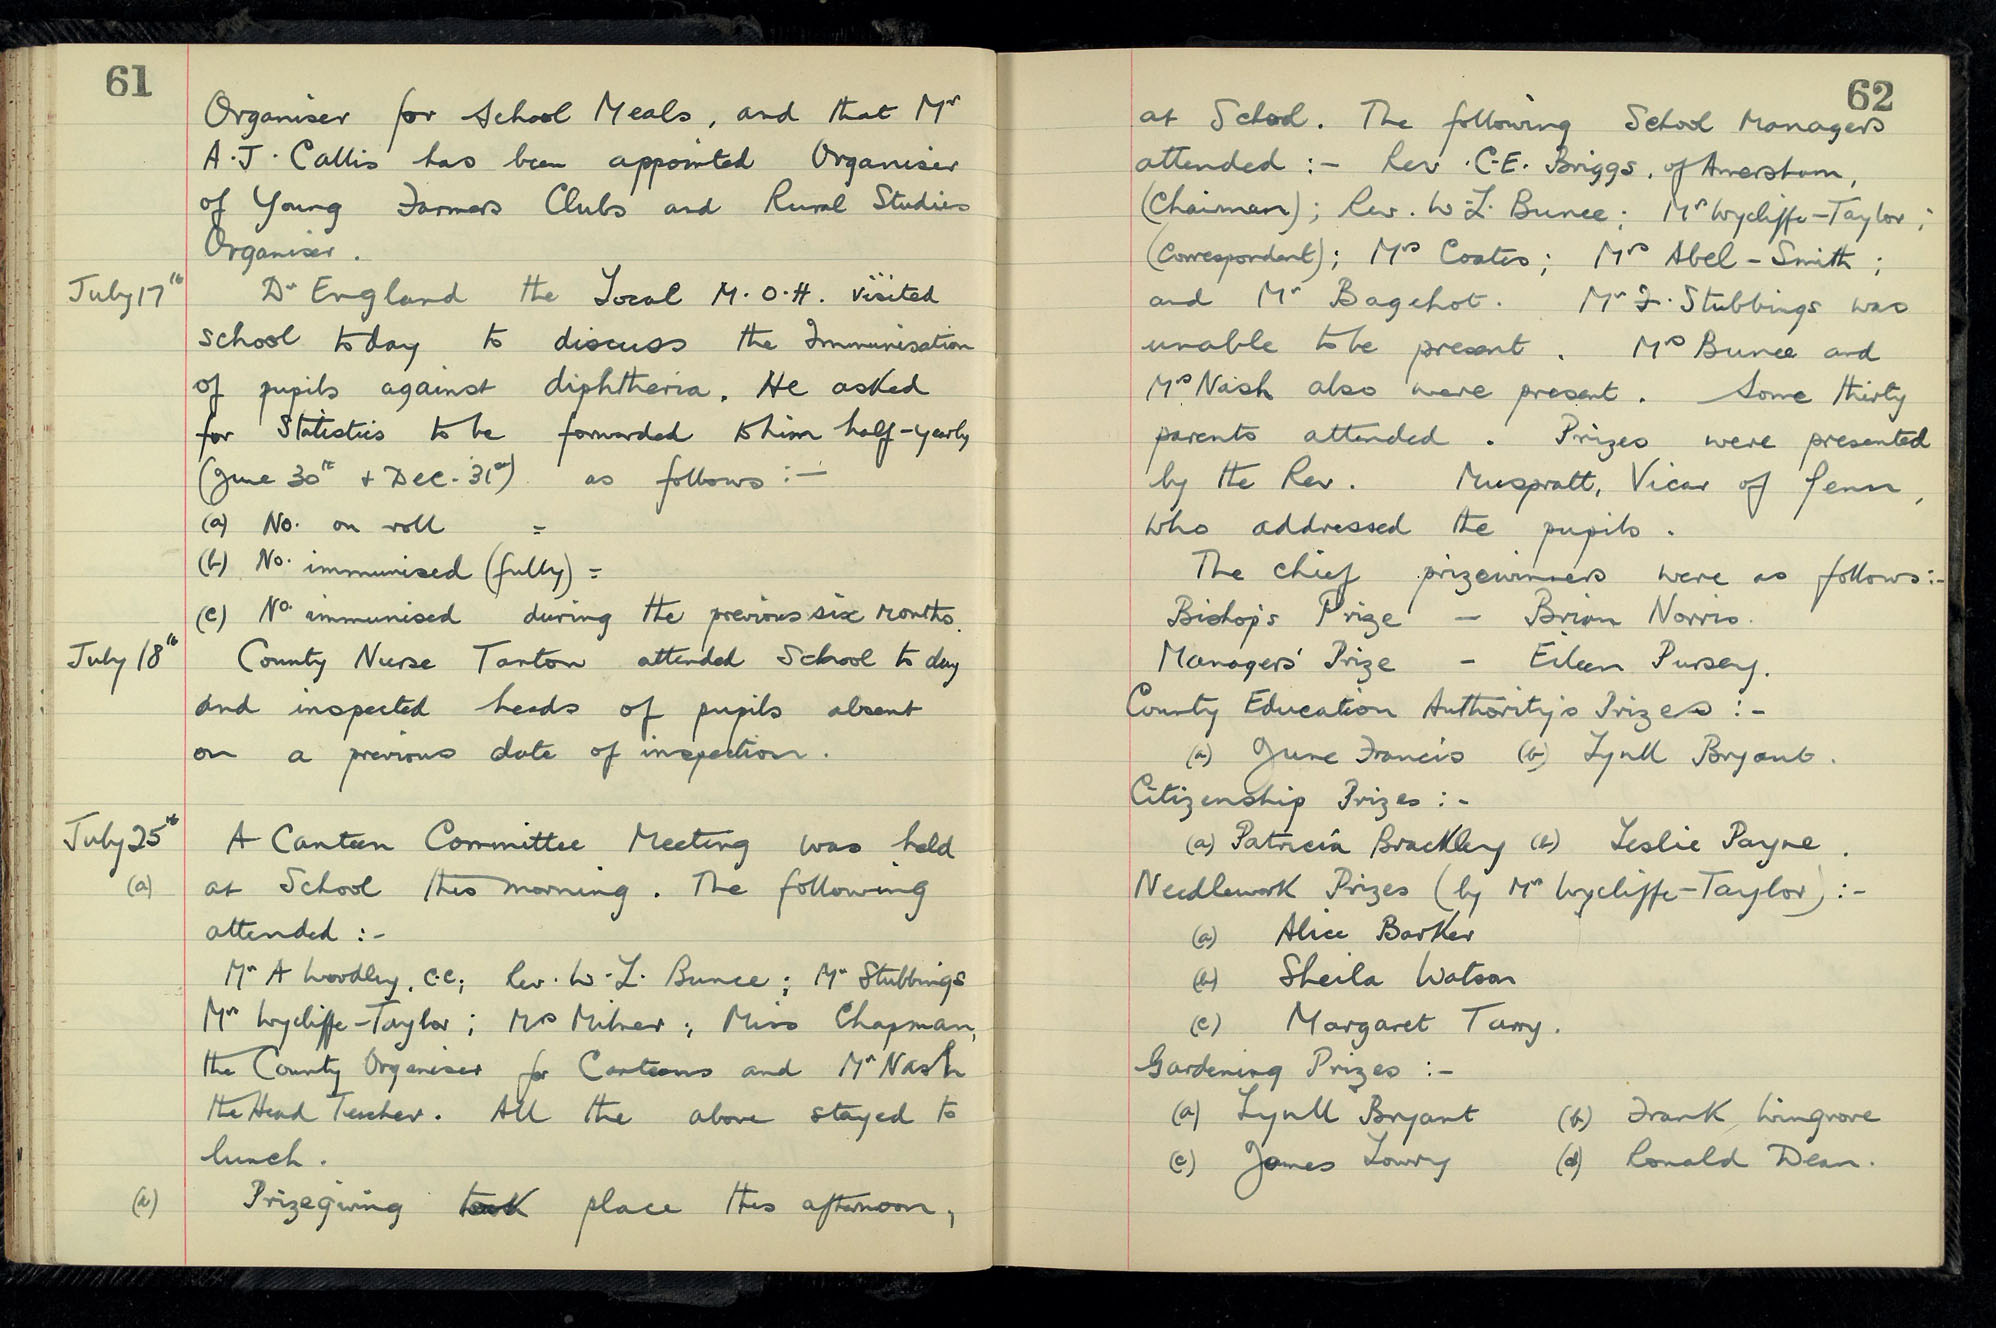 61
Organiser for School Meals, and that Mr
A.J. Callis has been appointed Organiser
of Young Farmers Clubs and Rural Studies
Organiser.
July 17th Dr England the Local M.O.H. visited
school today to discuss the Immunisation
of pupils against diphtheria. He asked
for Statistics to be forwarded to him half-yearly
(June 30th + Dec. 31st) as follows :-
(a) No. on roll =
(b) No. immunised (fully) =
(c) No. immunised during the previous six months.
July 18th County Nurse Tanton attended School today
and inspected heads of pupils absent
on a previous date of inspection.
July 25th A Canteen Committee Meeting was held
(a) at School this morning. The following
attended :-
Mr A Woodley, C.C; Rev. W.L. Bunce; Mr Stubbings
Mr Wycliffe-Taylor; Mrs Milner; Miss Chapman,
the County Organiser for Canteens and Mr Nash
the Head Teacher. All the above stayed to
lunch.
(b) Prizegiving took place this afternoon,
62
at School. The following School Managers
attended :- Rev. C.E. Briggs, of Amersham,
(Chairman); Rev. W.L. Bunce; Mr Wycliffe-Taylor;
(Correspondent); Mrs Coates; Mrs Abel-Smith;
and Mr Bagehot. Mr F. Stubbings was
unable to be present. Mrs Bunce and
Mrs Nash also were present. Some thirty
parents attended. Prizes were presented
by the Rev. Muspratt, Vicar of Penn,
who addressed the pupils.
The chief prizewinners were as follows:-
Bishop's Prize - Brian Norris.
Managers' Prize - Eileen Pursey.
County Education Authority's Prizes :-
(a) June Francis (b) Lynll Bryant.
Citizenship Prizes :-
(a) Patricia Brackley (b) Leslie Payne.
Needlework Prizes (by Mr Wycliffe-Taylor) :-
(a) Alice Barker
(b) Sheila Watson
(c) Margaret Tarry.
Gardening Prizes :-
(a) Lynll Bryant (b) Frank Wingrove
(c) James Lowry (d) Ronald Dean.